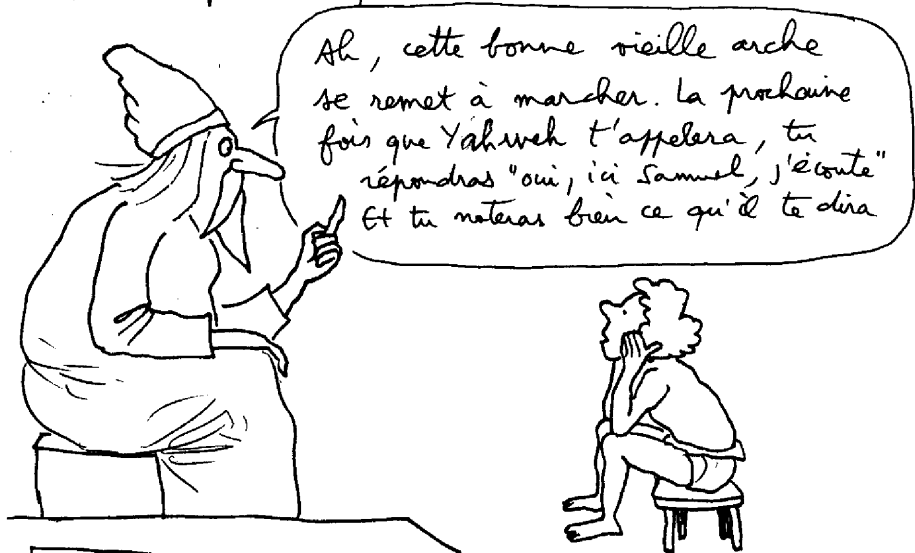 Ah, cette bonne vieille arche
se remet à marcher. La prochaine
fois que Yahweh t'appelera, tu
répondras "oui, ici Samuel, j'écoute"
Et tu noteras bien ce qu'il te dira